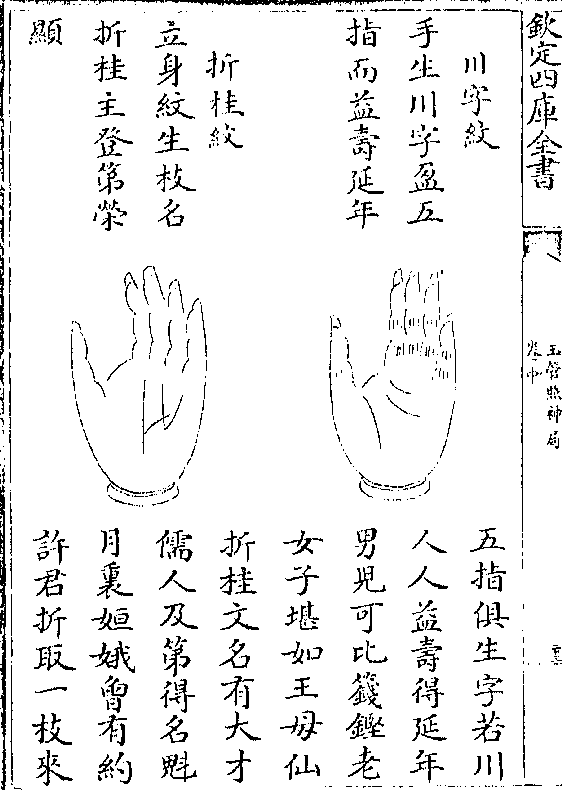 欽定四庫全書
玉管照神局
卷中
川字紋
手生川字盈五
指而益壽延年
五指俱生字若川
人人益壽得延年
男兒可比籛鏗老
女子堪如王母仙
折桂紋
立身紋生枝名
折桂主登第榮
顯
折桂文名有大才
儒人及第得名魁
月裏姮娥曾有約
許君折取一枝來